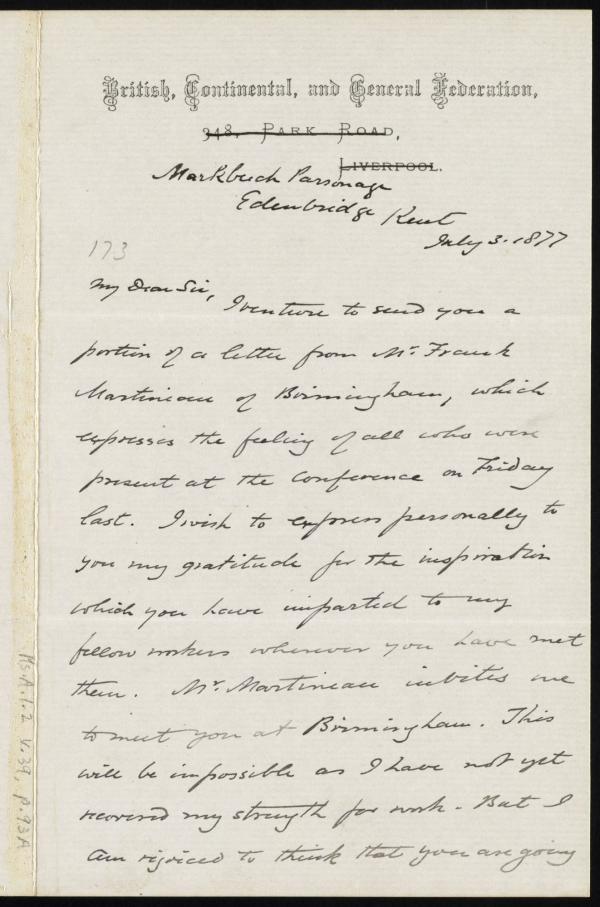 British, Continental, and General Federation,
348, Park Road,
Liverpool.
Markbeech Parsonage
Edenbridge Kent
July 3. 1877
173
My Dear Sir,
I venture to send you a
portion of a letter from Mr. Frank
Martineau of Birmingham, which
expresses the feeling of all who were
present at the Conference on Friday
last. I wish to express personally to
you my gratitude for the inspiration
which you have imparted to my
fellow workers wherever you have met
them. Mr. Martineau invites me
to meet you at Birmingham. This
will be impossible as I have not yet
recovered my strength for work. But I
am rejoiced to think that you are going
Ms.A.1.2 V.39, p.93A